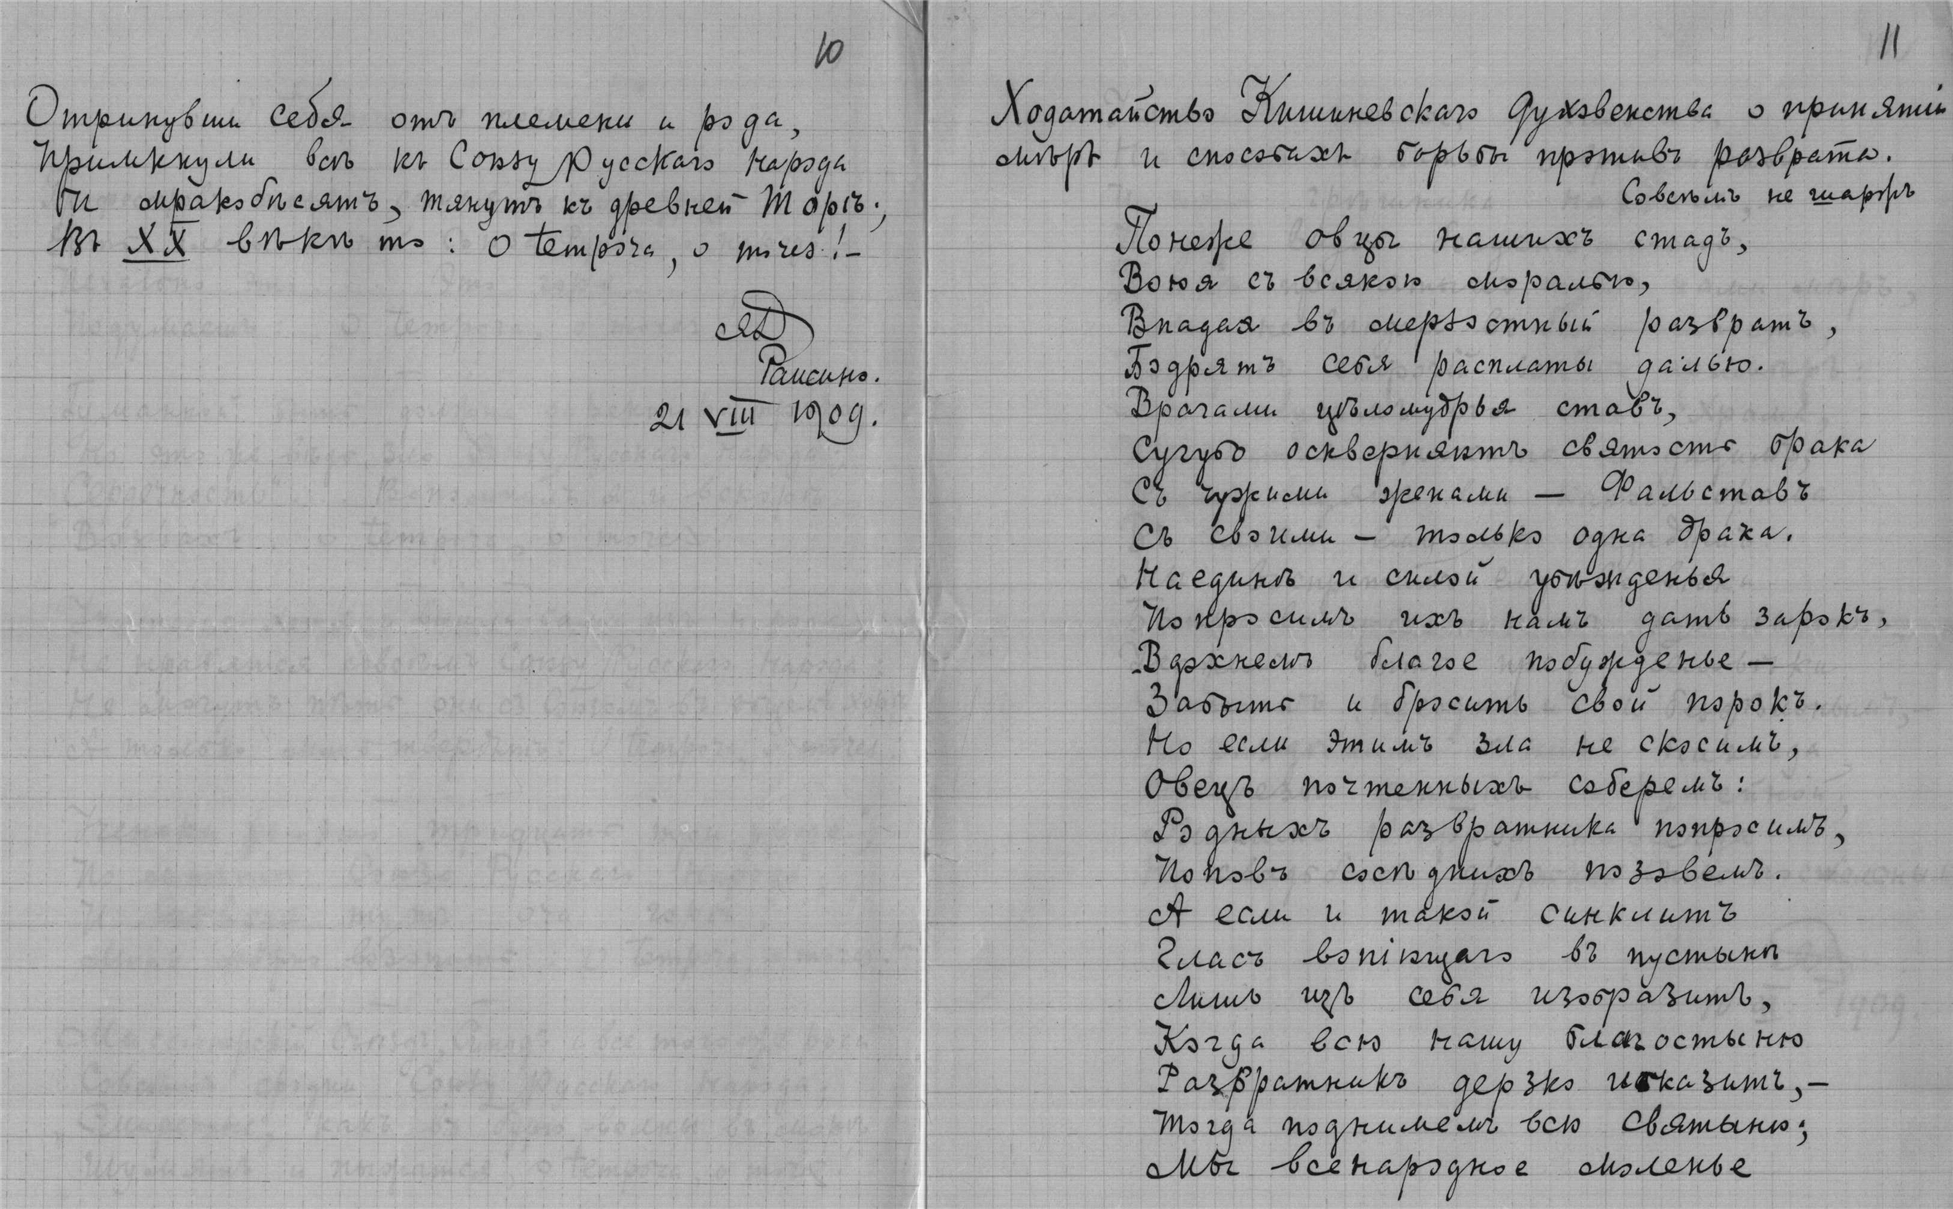 10
Отринувши себя отъ племени и рода,
Примкнули всѣ къ Союзу Русскаго Народа
И мракобѣсятъ, тянутъ къ древней Торѣ;
Въ XX вѣкѣ то: О tempora, о mores!–
Раисино.
21 VIII 1909.
11
Ходатайство Кишиневскаго Духовенства о принятіи
мѣръ и способахъ борьбы противъ разврата.
Совсѣмъ не шаржъ
Понеже овцы нашихъ стадъ,
Воюя съ всякою моралью,
Впадая въ мерзостный развратъ,
Бодрятъ себя расплаты далью.
Врачами цѣломудрья ставъ,
Сугубо оскверняютъ святость брака
Съ чужими женами — Фальставъ
Съ своими – только одна драка.
Наединѣ и силой убѣжденья
Попросимъ ихъ намъ дать зарокъ,
Вдохнемъ благое побужденье —
Забыть и бросить свой порокъ.
Но если этимъ зла не скосимъ,
Овецъ почтенныхъ соберемъ:
Родныхъ развратника попросимъ,
Поповъ сосѣднихъ позовемъ.
А если и такой синклитъ
Гласъ вопіющаго въ пустынѣ
Лишь изъ себя изобразитъ,
Когда всю нашу благостыню
Развратникъ дерзко исказитъ,–
Тогда поднимемъ всю святыню;
Мы всенародное моленье